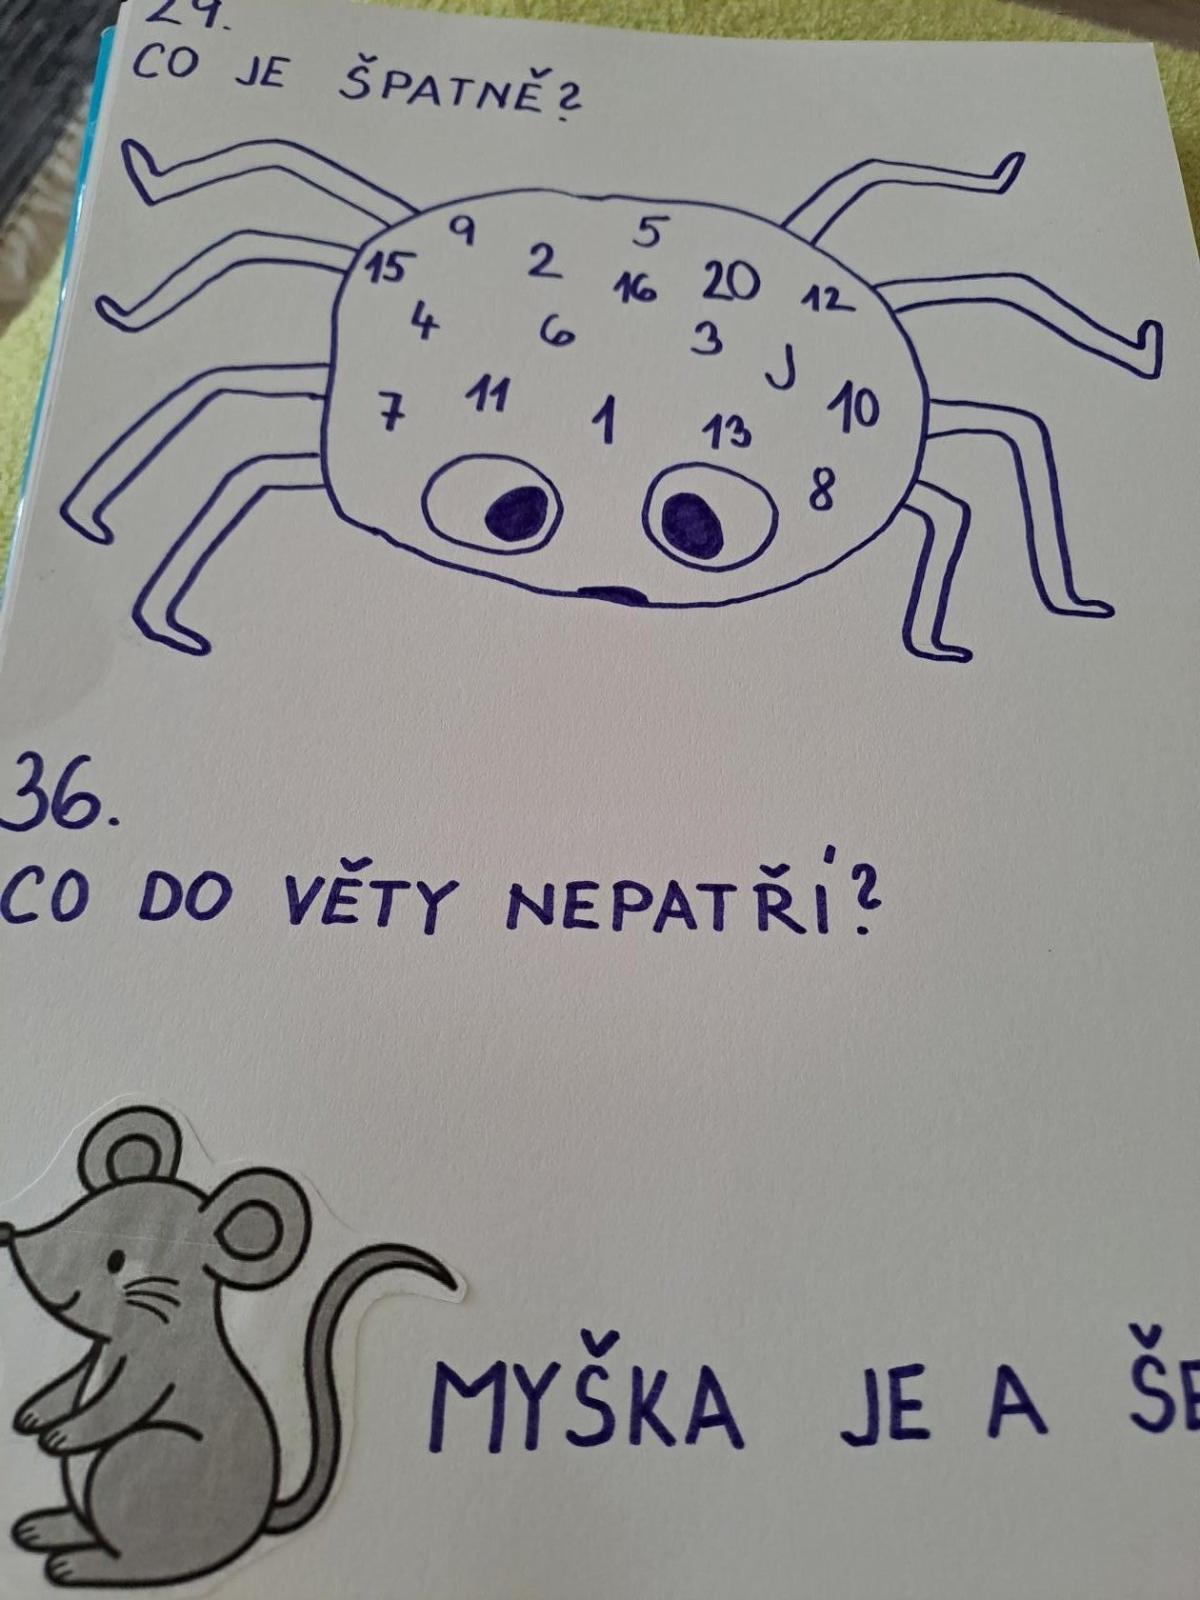 29.
CO JE ŠPATNĚ?
9 5
15 2 16 20 12
4 6 3 J
7 11 1 13 10
8
36.
CO DO VĚTY NEPATŘÍ?
MYŠKA JE A